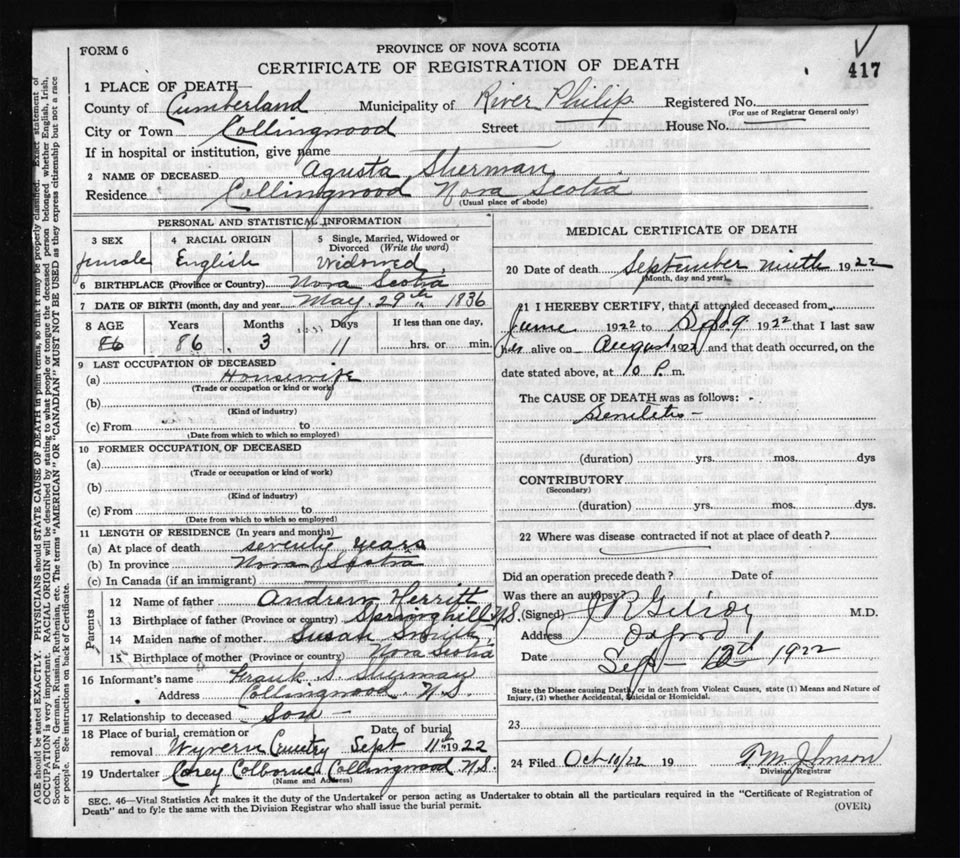 FORM 6
PROVINCE OF NOVA SCOTIA
CERTIFICATE OF REGISTRATION OF DEATH
417
1 PLACE OF DEATH—
County of Cumberland Municipality of River Philip Registered No.
(For use of Registrar General only)
City or Town Collingwood Street House No.
If in hospital or institution, give name
2 NAME OF DECEASED Agusta Sherman
Residence Collingwood Nova Scotia
(Usual place of abode)
PERSONAL AND STATISTICAL INFORMATION
3 SEX 4 RACIAL ORIGIN 5 Single, Married, Widowed or Divorced (Write the word)
female English Widowed
6 BIRTHPLACE (Province or Country) Nova Scotia
7 DATE OF BIRTH (month, day and year) May 29th 1836
8 AGE Years Months Days If less than one day,
86 86 3 11 hrs. or min.
9 LAST OCCUPATION OF DECEASED
(a) Housewife
(Trade or occupation or kind or work)
(b)
(Kind of industry)
(c) From to
(Date from which to which so employed)
10 FORMER OCCUPATION, OF DECEASED
(a)
(Trade or occupation or kind of work)
(b)
(Kind of industry)
(c) From to
(Date from which to which so employed)
11 LENGTH OF RESIDENCE (In years and months)
(a) At place of death seventy years
(b) In province Nova Scotia
(c) In Canada (if an immigrant)
Parents
12 Name of father Andrew Herritt
13 Birthplace of father (Province or country) Springhill N.S.
14 Maiden name of mother Susan Smith
15 Birthplace of mother (Province or country) Nova Scotia
16 Informant's name Frank S. Sherman
Address Collingwood N.S.
17 Relationship to deceased Son —
18 Place of burial, cremation or removal Date of burial
Wyvern Cemetry Sept 11th 1922
19 Undertaker Corey Colborne Collingwood N.S.
(Name and Address)
MEDICAL CERTIFICATE OF DEATH
20 Date of death September ninth 1922
(Month, day and year)
21 I HEREBY CERTIFY, that I attended deceased from
June 1922 to Sept 9 1922 that I last saw
her alive on August 1922 and that death occurred, on the
date stated above, at 10 P. m.
The CAUSE OF DEATH was as follows:
(duration) yrs. mos. dys
CONTRIBUTORY
(Secondary)
(duration) yrs. mos. dys.
22 Where was disease contracted if not at place of death?
Did an operation precede death? Date of
Was there an autopsy?
(Signed) M.D.
Address Oxford
Date Sept 1922
State the Disease causing Death, or in death from Violent Causes, state (1) Means and Nature of
Injury, (2) whether Accidental, Suicidal or Homicidal.
23
24 Filed Oct 10/22 19 Johnson
Division Registrar
SEC. 46—Vital Statistics Act makes it the duty of the Undertaker or person acting as Undertaker to obtain all the particulars required in the "Certificate of Registration of
Death" and to fyle the same with the Division Registrar who shall issue the burial permit.
(OVER)
AGE should be stated EXACTLY. PHYSICIANS should STATE CAUSE OF DEATH in plain terms, so that it may be properly classified. Exact statement of
OCCUPATION is very important. RACIAL ORIGIN will be described by stating to what people or tongue the deceased person belonged whether English, Irish,
Scotch, French, German, Russian, Ruthenian, etc. The terms "AMERICAN" OR "CANADIAN" MUST NOT BE USED as they express citizenship but not a race
or people. See instructions on back of Certificate.